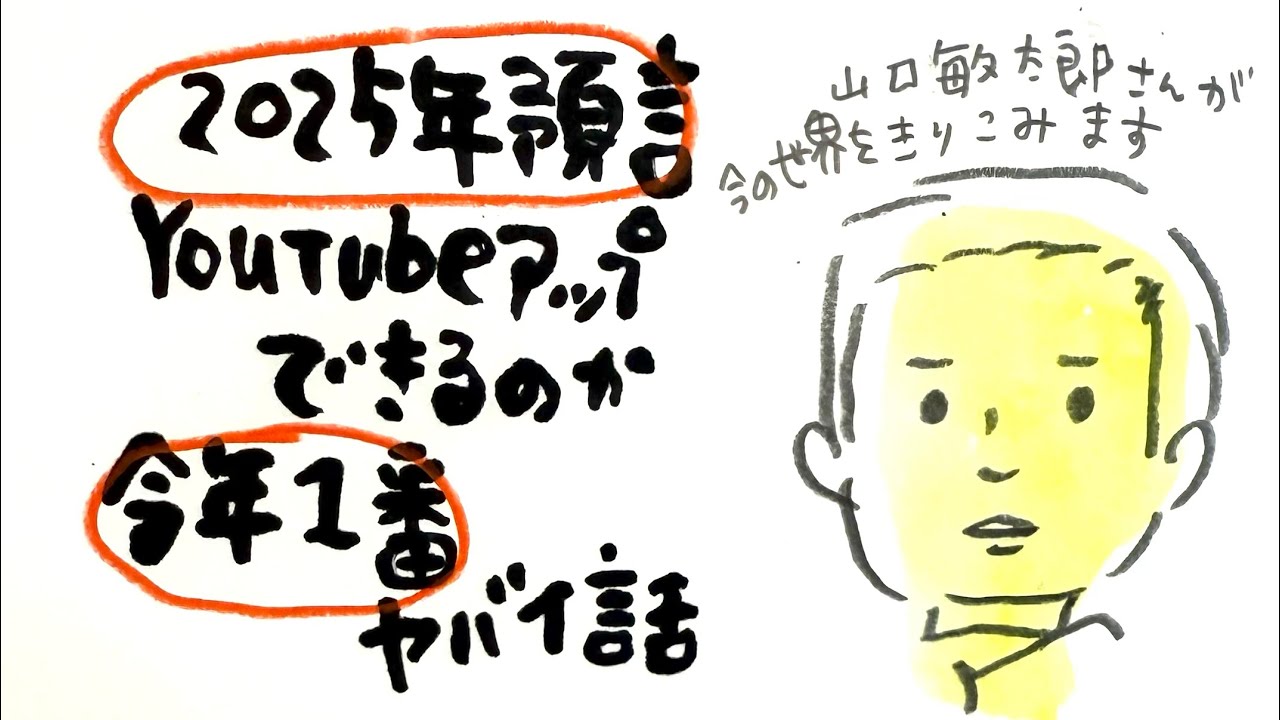 2025年預言
YouTubeアップ
できるのか
今年1番
ヤバイ話
山口敏太郎さんが
今の世界をきりこみます